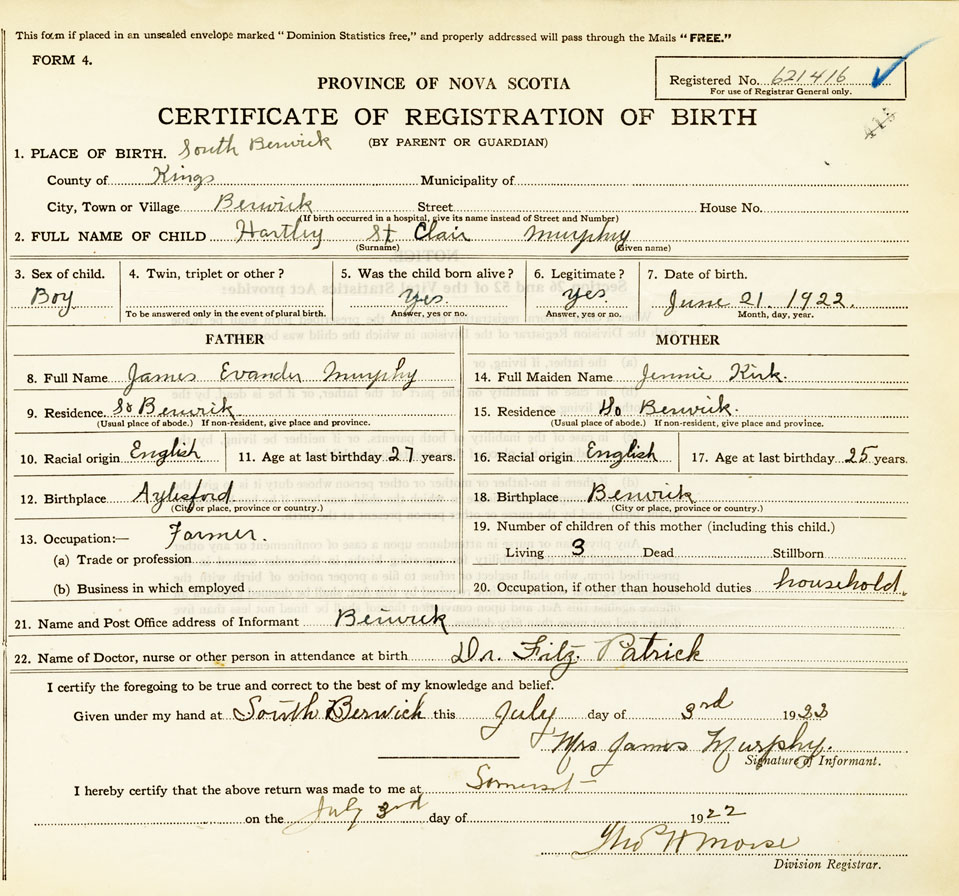 This form if placed in an unsealed envelope marked "Dominion Statistics free," and properly addressed will pass through the Mails "FREE."
FORM 4.
Registered No. 621416
For use of Registrar General only.
PROVINCE OF NOVA SCOTIA
CERTIFICATE OF REGISTRATION OF BIRTH
(BY PARENT OR GUARDIAN)
1. PLACE OF BIRTH. South Berwick
County of Kings Municipality of
City, Town or Village Berwick Street House No.
(If birth occurred in a hospital, give its name instead of Street and Number)
2. FULL NAME OF CHILD Hartley St Clair Murphy
(Surname) (Given name)
3. Sex of child. 4. Twin, triplet or other? 5. Was the child born alive? 6. Legitimate? 7. Date of birth.
Boy Yes. Yes June 21. 1922.
To be answered only in the event of plural birth. Answer, yes or no. Answer, yes or no. Month, day, year.
FATHER MOTHER
8. Full Name James Evander Murphy 14. Full Maiden Name Jennie Kirk.
9. Residence. So Berwick. 15. Residence So Berwick.
(Usual place of abode.) If non-resident, give place and province. (Usual place of abode.) If non-resident, give place and province.
10. Racial origin English 11. Age at last birthday 27 years. 16. Racial origin English 17. Age at last birthday 25 years.
12. Birthplace Aylesford 18. Birthplace Berwick
(City or place, province or country.) (City or place, province or country.)
13. Occupation:— Farmer. 19. Number of children of this mother (including this child.)
(a) Trade or profession Living 3 Dead Stillborn
(b) Business in which employed 20. Occupation, if other than household duties household
21. Name and Post Office address of Informant Berwick
22. Name of Doctor, nurse or other person in attendance at birth Dr. Fitz Patrick
I certify the foregoing to be true and correct to the best of my knowledge and belief.
Given under my hand at South Berwick this July day of 3rd 1922
Mrs James Murphy.
Signature of Informant.
I hereby certify that the above return was made to me at Somerset
on the July 3rd day of 1922
Morse
Division Registrar.